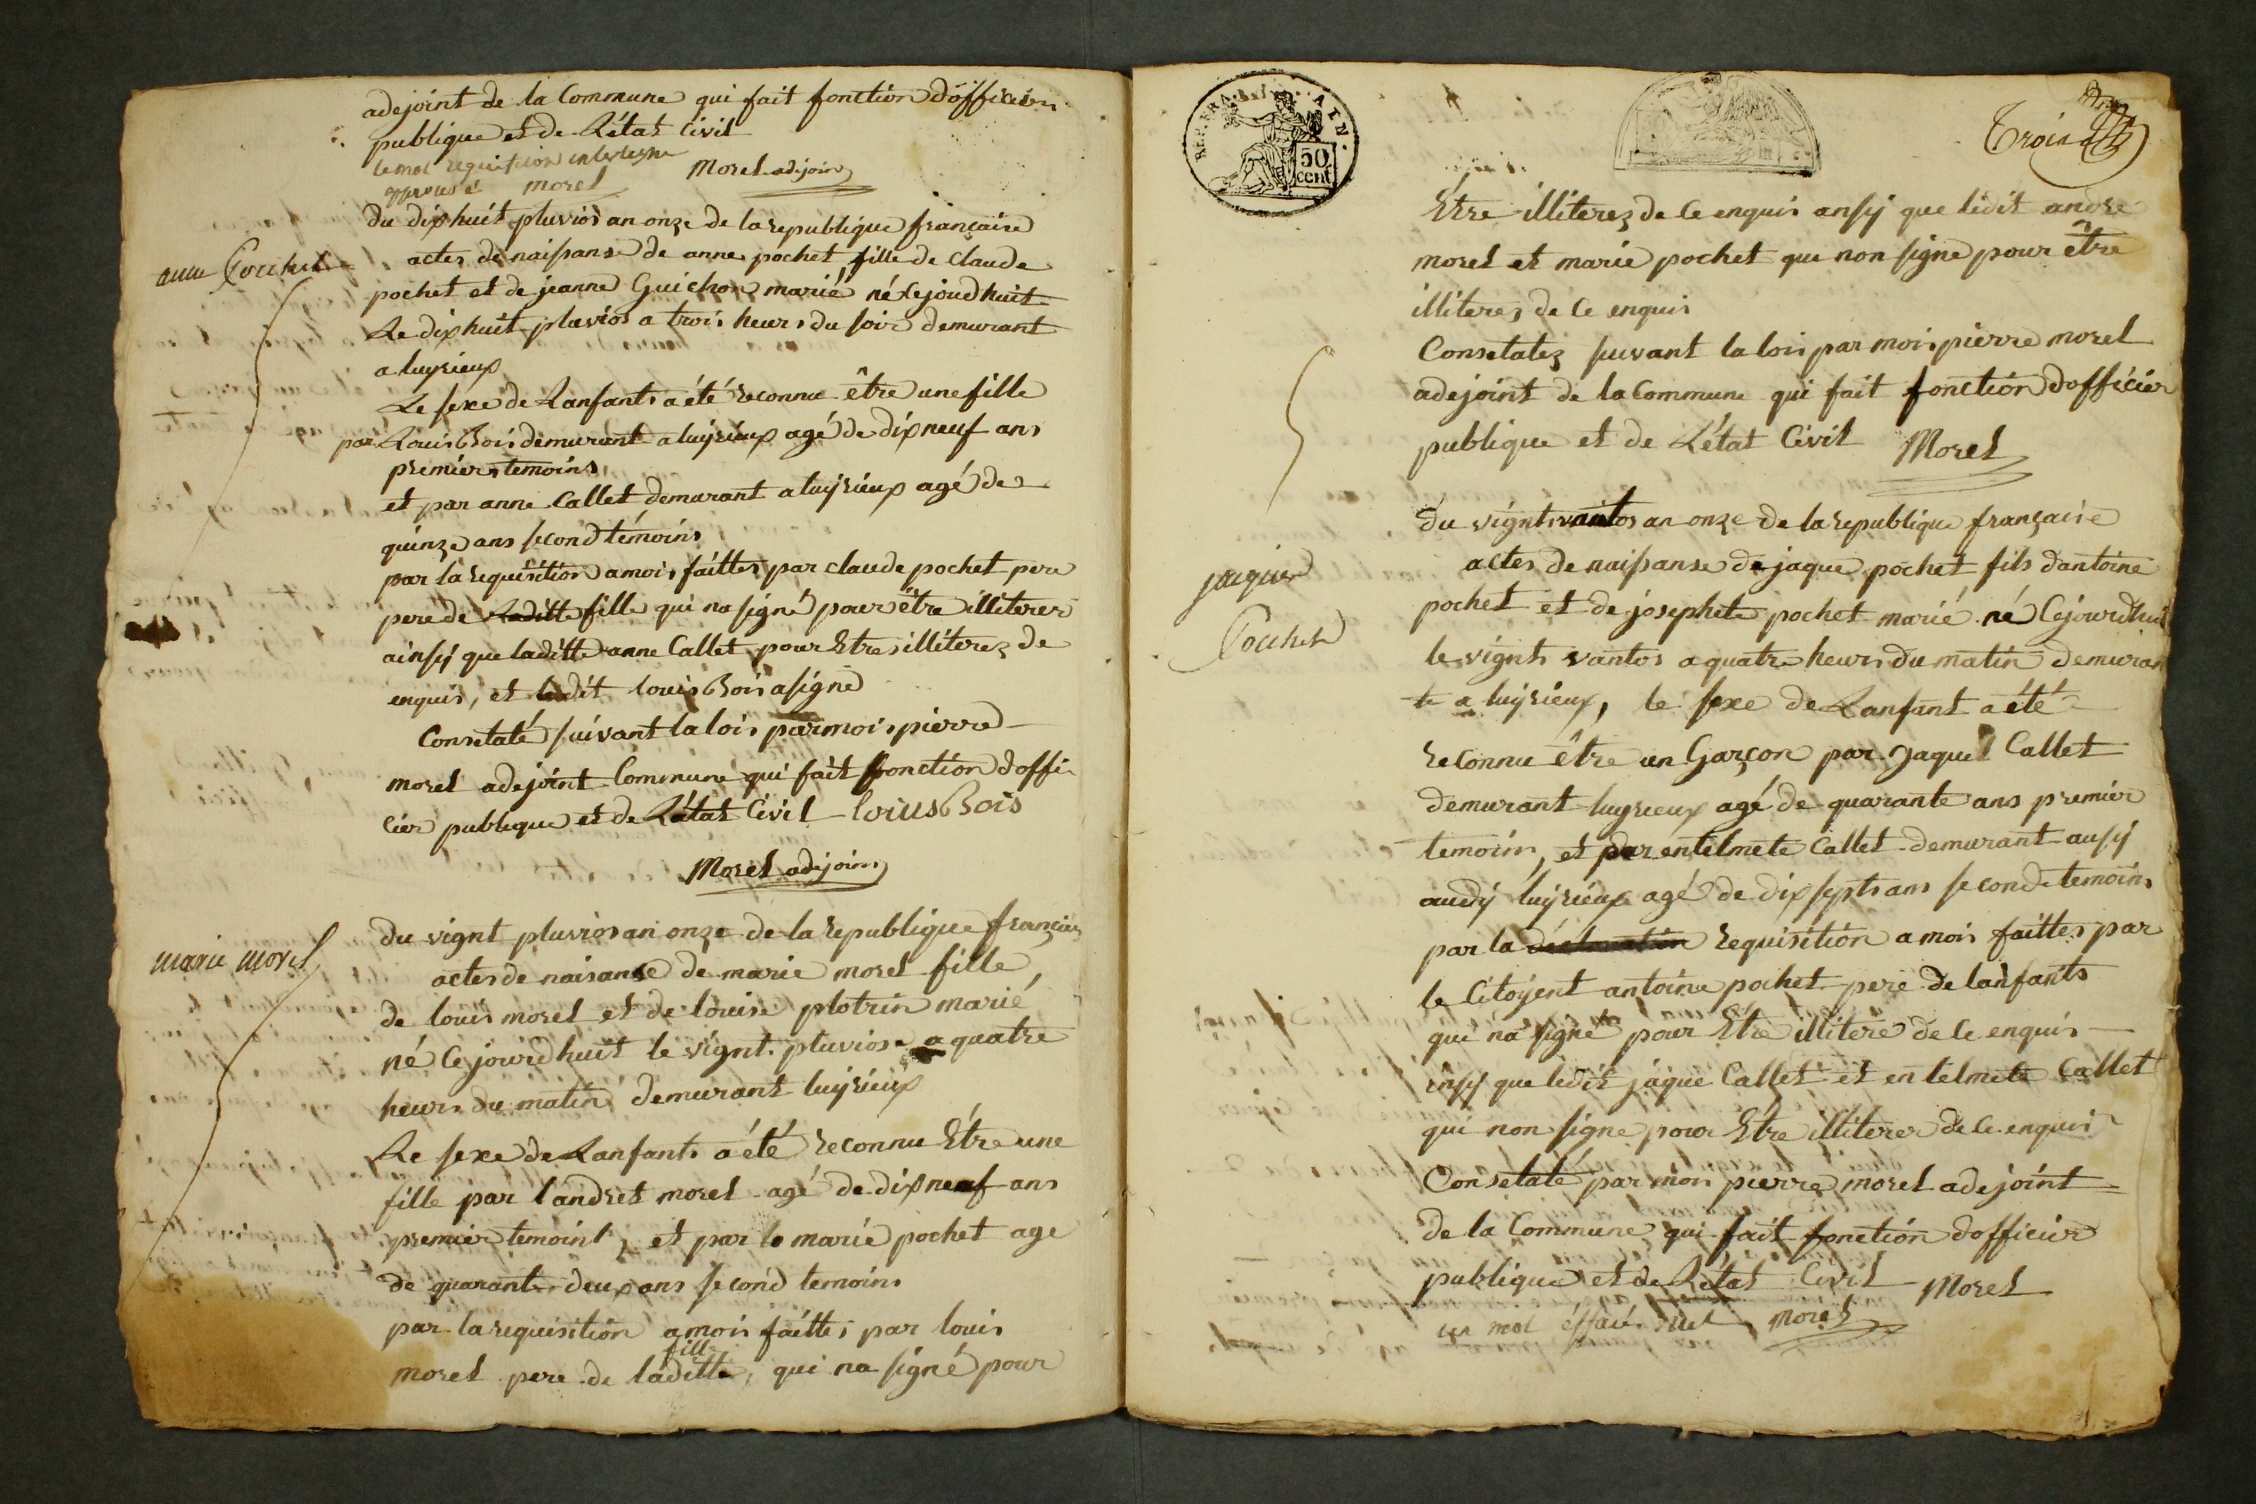 adejoint de la Commune qui fait fonction dofficier
publique et de Létat Civil
le mot requisition interligne
approuvé morel Morel adejoin
du dixhuit pluvios an onze de la republique française
anne Pochet
actes de naissanse de anne pochet fille de Claude
pochet et de jeanne Guichon marié né Cejourdhuit
Le dixhuit pluvios a trois heurs du soir demurant
a luyrieux
Le sexe de Lanfants a été reconnue être une fille
par Louis Bois demurant a luyrieux agé de dix neuf ans
premier temoins
et par anne Callet demurant a luyrieux agé de
quinze ans second témoins
par la requisition a mois faittes par claude pochet pere
pere de Laditte fille qui na signé pour être illiterer
ainsy que laditte anne Callet pour Etres illiterez de
enquis, et ledit louis Bois a signé
Consetaté suivant la lois par mois pierre
morel adejoint Commune qui fait fonction doffi
cier publique et de Létat Civil louis Bois
Morel adejoin
marie morel
du vignt pluvios an onze de la republique français
actes de naisanse de marie morel fille
de louis morel et de louise plotrin marié
né Cejourdhuit le vignt pluviose a quatre
heurs du matin demurant luyrieux
Le sexe de Lanfants a été reconnu Etre une
fille par landret morel agé de dix neuf ans
premier temoint, et par la marie pochet age
de quarante deux ans second temoins
par la requisition a mois faittes par louis
fille
morel pere de laditte, qui na signé pour
REP. FRA. AIN.
50 cent
Trois
Etre illiterez de Ce enquis ansy que ledit andre
morel et marie pochet que non signe pour être
illiteres de Ce enquis
Consetatez suivant la lois par mois pierre morel
adejoint de la Commune qui fait fonction dofficier
publique et de Létat Civil Morel
du vignt vantos an onze de la republique française
jacques
Pochet
actes de naissanse de jaque pochet fils dantoine
pochet et de josephete pochet marié né Cejourdhuit
le vignts vantos a quatre heurs du matin demuran
te a luyrieux, le sexe de Lanfant a été
reconnu être un Garçon par Jaque Callet
demurant luyrieux agé de quarante ans premier
temoin, et par entelmete Callet demurant ausy
audy luyrieux agé de dix septs ans second temoins
par la déclaration requisition a mois faittes par
le Citoyent antoine pochet pere de lanfants
qui na signé pour Etre illitere de Ce enquis
insy que ledit jaque Callet et entelmete Callet
qui non signe pour Etre illiterer de Ce enquis
Consetaté par mois pierre morel adejoint
de la Commune qui fait fonction dofficier
publique et de Létat Civil Morel
un mot éffacé nul morel